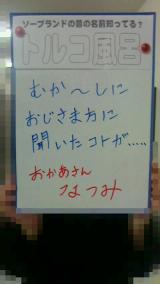 ソープランドの昔の名前知ってる？
トルコ風呂
むか〜しに
おじさま方に
聞いたコトが.....
おかあさん
なつみ